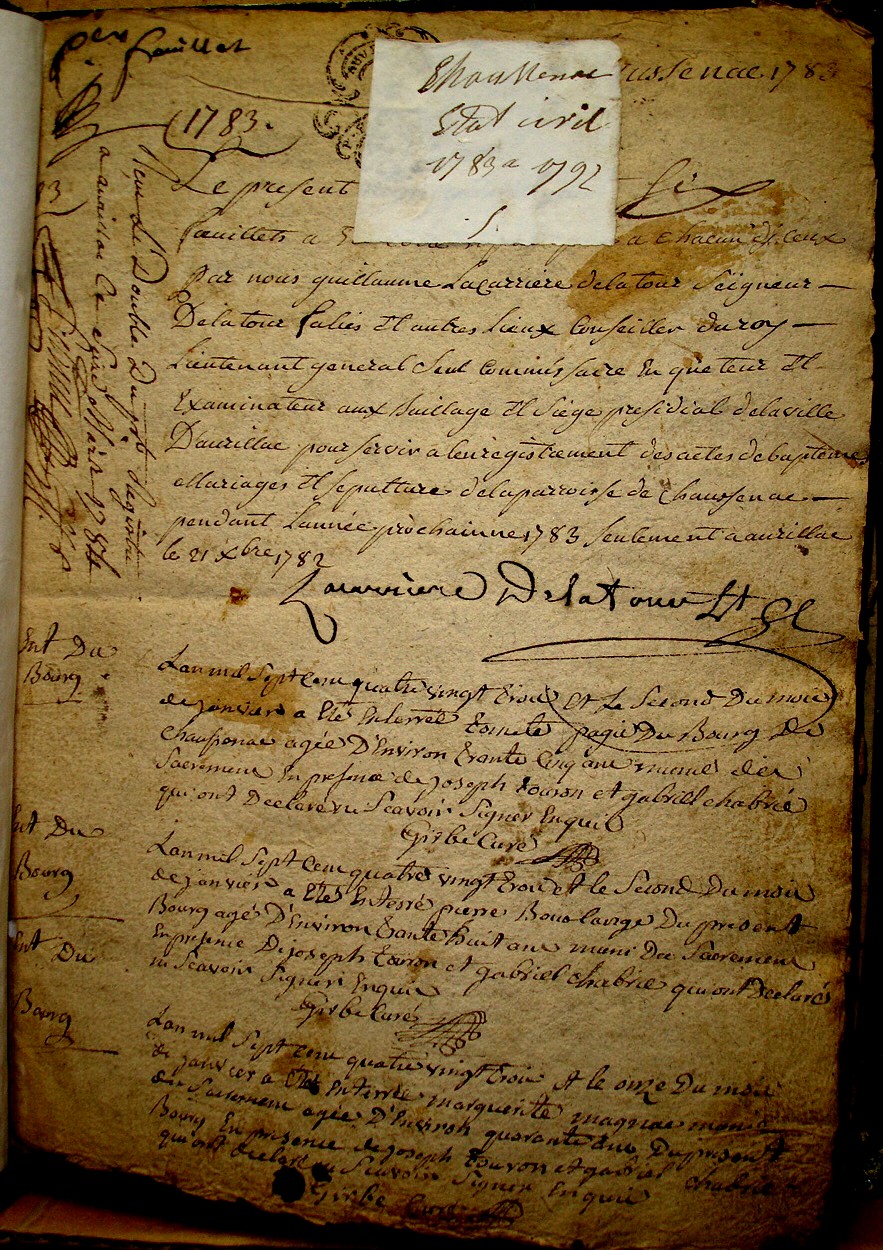 1er feuillet
Chaussenac 1783
Chaussenac
Etat civil
1783 a 1792
1783.
Le present Six
feuillets a chacun d'iceux
par nous guillaume Lacarriere delatour Seigneur
Delatour falies Et autres Lieux Conseiller du roy
Lieutenant general Seul Commissaire Enqueteur Et
Examinateur aux Baillage Et Siége presidial delaville
Daurillac pour servir a lenregistrement des actes de baptemes
Mariages Et Sepulture delaparroisse de Chaussenac
pendant Lannée prochainne 1783 seulement a aurillac
le 21 xbre 1782
Lacarriere Delatour Lt gl
Reçu Le Double Du prt Registre
a aurillac Ce 1784
Ent Du
Bourg
Lan mil Sept Cent quatre vingt trois et Le Second Du mois
de janvier a Eté Enterrée toinete pagés Du Bourg De
Chaussenac agée D'Environ trante Cinq ans munie des
Sacremens En presence de joseph touron et gabriel chabrié
qui ont Declaré ne Scavoir Signer Enquis
Girbe Curé
Ent Du
Bourg
Lan mil Sept Cent quatre vingt trois et le Second Du mois
de janvier a Eté Enterré pierre Du present
Bourg agé D'Environ trante huit ans muni Des Sacremens
En presence De joseph touron et gabriel chabrié qui ont Declaré
ne Scavoir Signer Enquis
Girbe Curé
Ent Du
Bourg
Lan mil Sept Cent quatre vingt trois et le onze Du mois
de janvier a Eté Enterrée marguerite magnac munie
des Sacremens agée D'Environ quarante ans Du present
Bourg En presence de joseph touron et gabriel chabrié
qui ont declaré ne Scavoir Signer Enquis
Girbe Curé